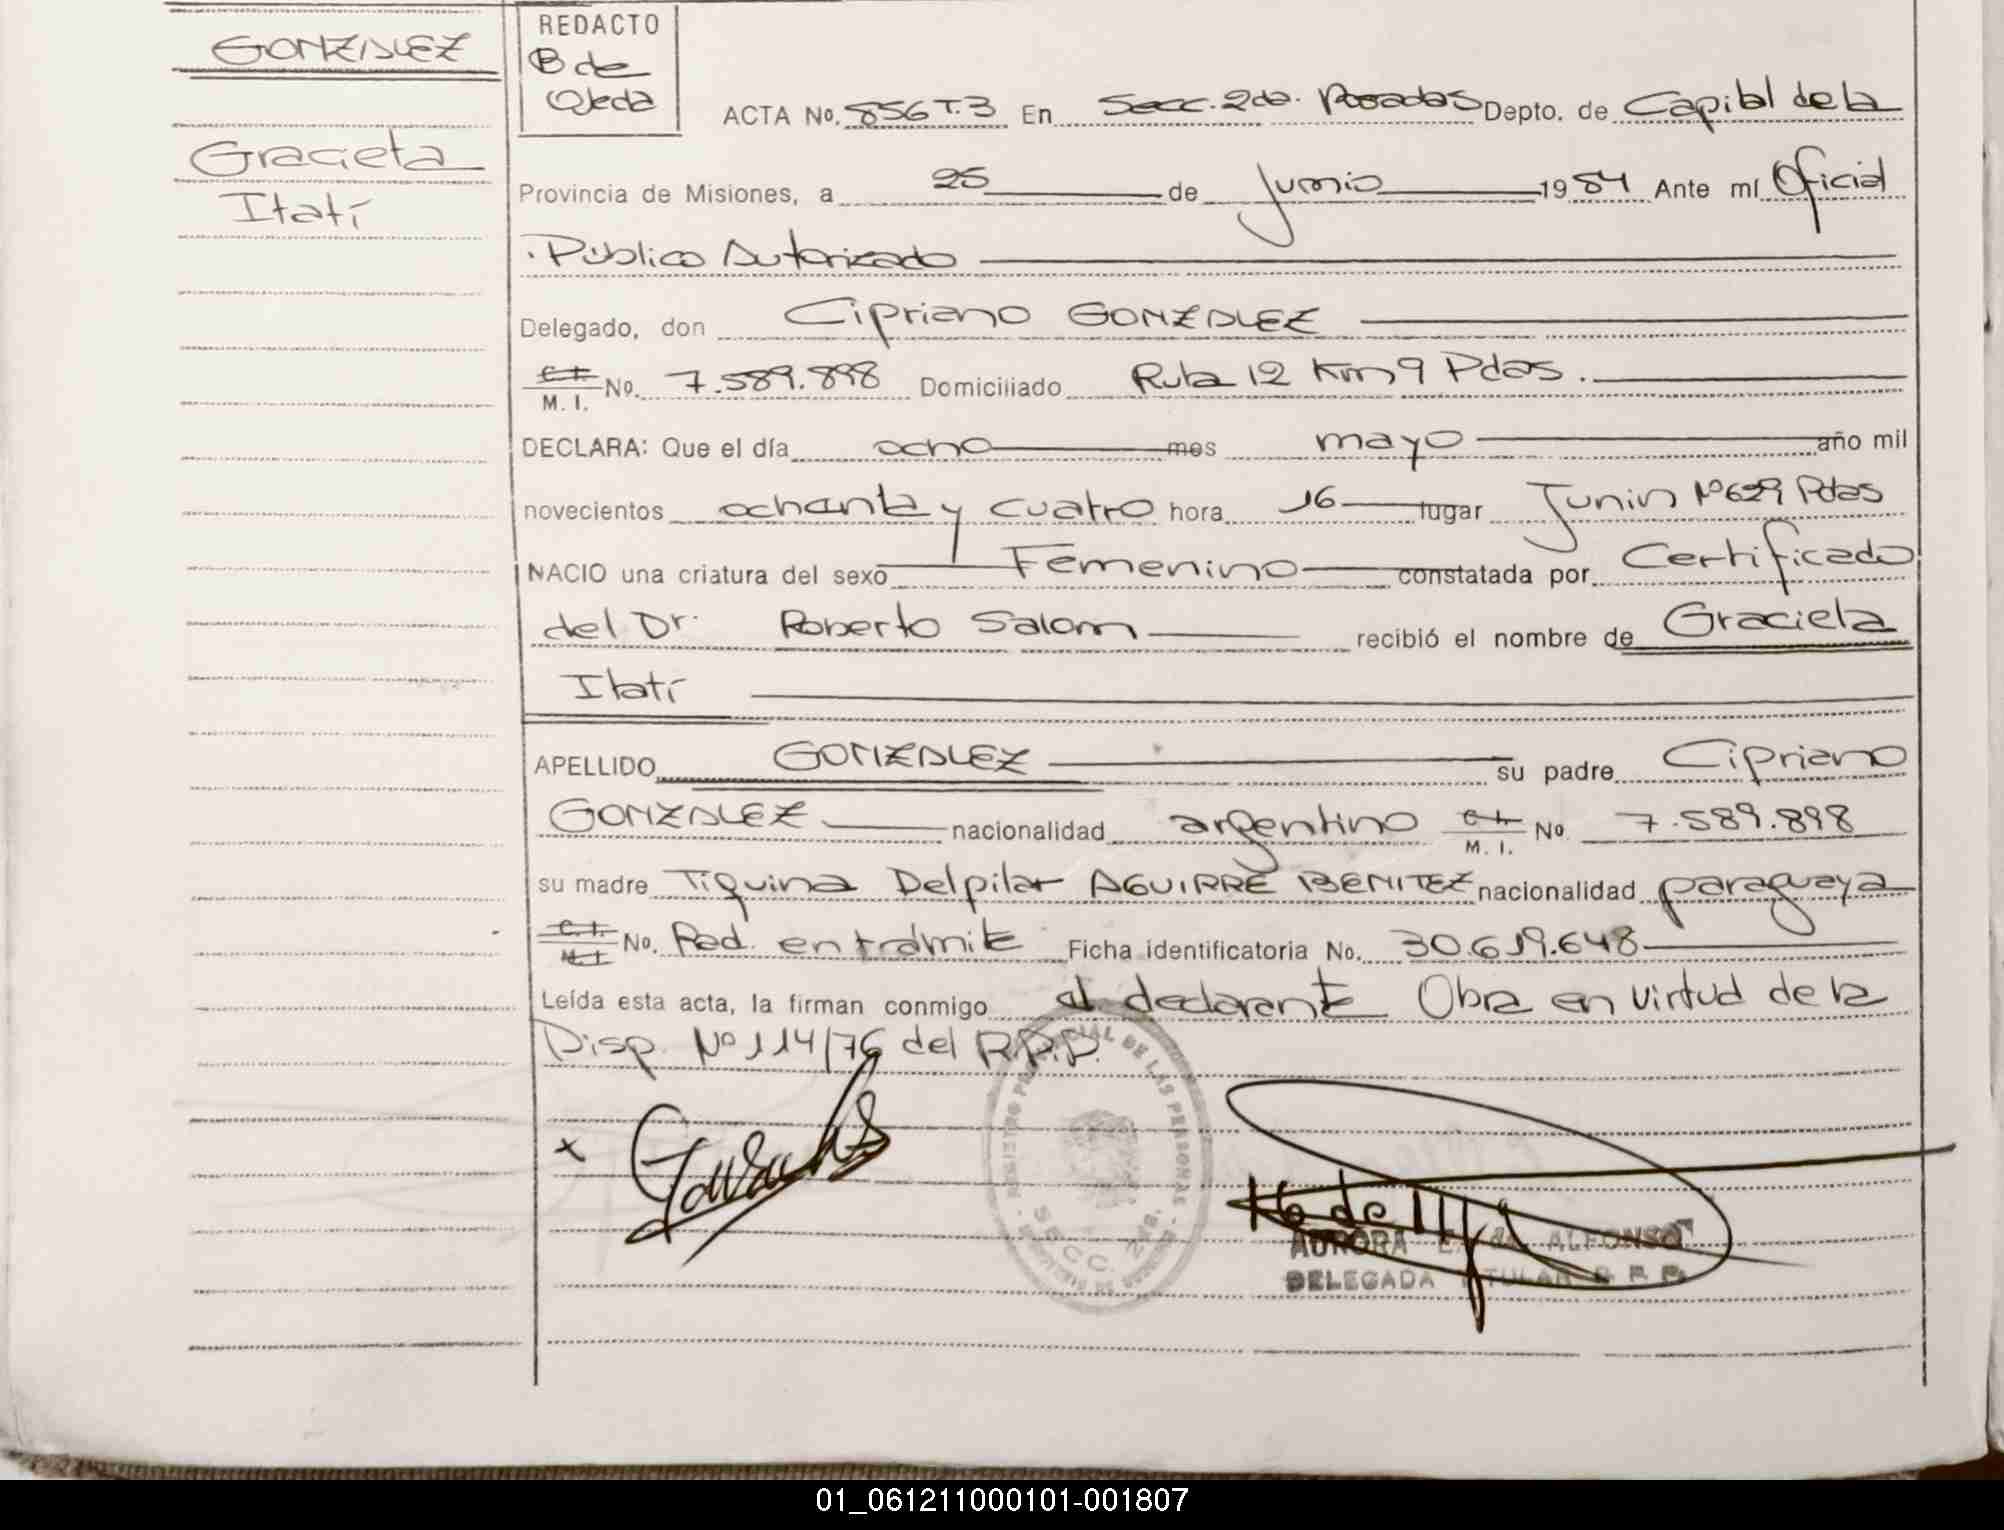 GONZALEZ
Graciela
Itatí
REDACTO
B de
Ojeda
ACTA No. 856 T.3 En Secc. 2da. Posadas Depto. de Capital de la
Provincia de Misiones, a 25 de Junio 1984 Ante mí Oficial
Público Autorizado
Delegado, don Cipriano GONZALEZ
C.I. M. I. No. 7.589.898 Domiciliado Ruta 12 Km 9 Pdas.
DECLARA: Que el día ocho mes mayo año mil
novecientos ochenta y cuatro hora 16 lugar Junin Nº 629 Pdas
NACIO una criatura del sexo Femenino constatada por Certificado
del Dr. Roberto Salom recibió el nombre de Graciela
Itatí
APELLIDO GONZALEZ su padre Cipriano
GONZALEZ nacionalidad argentino C.I. M. I. No. 7.589.898
su madre Tiquina Delpilar AGUIRRE BENITEZ nacionalidad paraguaya
C.I. M.I. No. Rad. en trámite Ficha identificatoria No. 30.619.648
Leída esta acta, la firman conmigo el declarante Obra en virtud de la
Disp. Nº 114/76 del R.P.P.
x
REGISTRO PROVINCIAL DE LAS PERSONAS
SECC. 2da.
AURORA DE ALFONSO
DELEGADA TITULAR R. P. P.
01_061211000101-001807